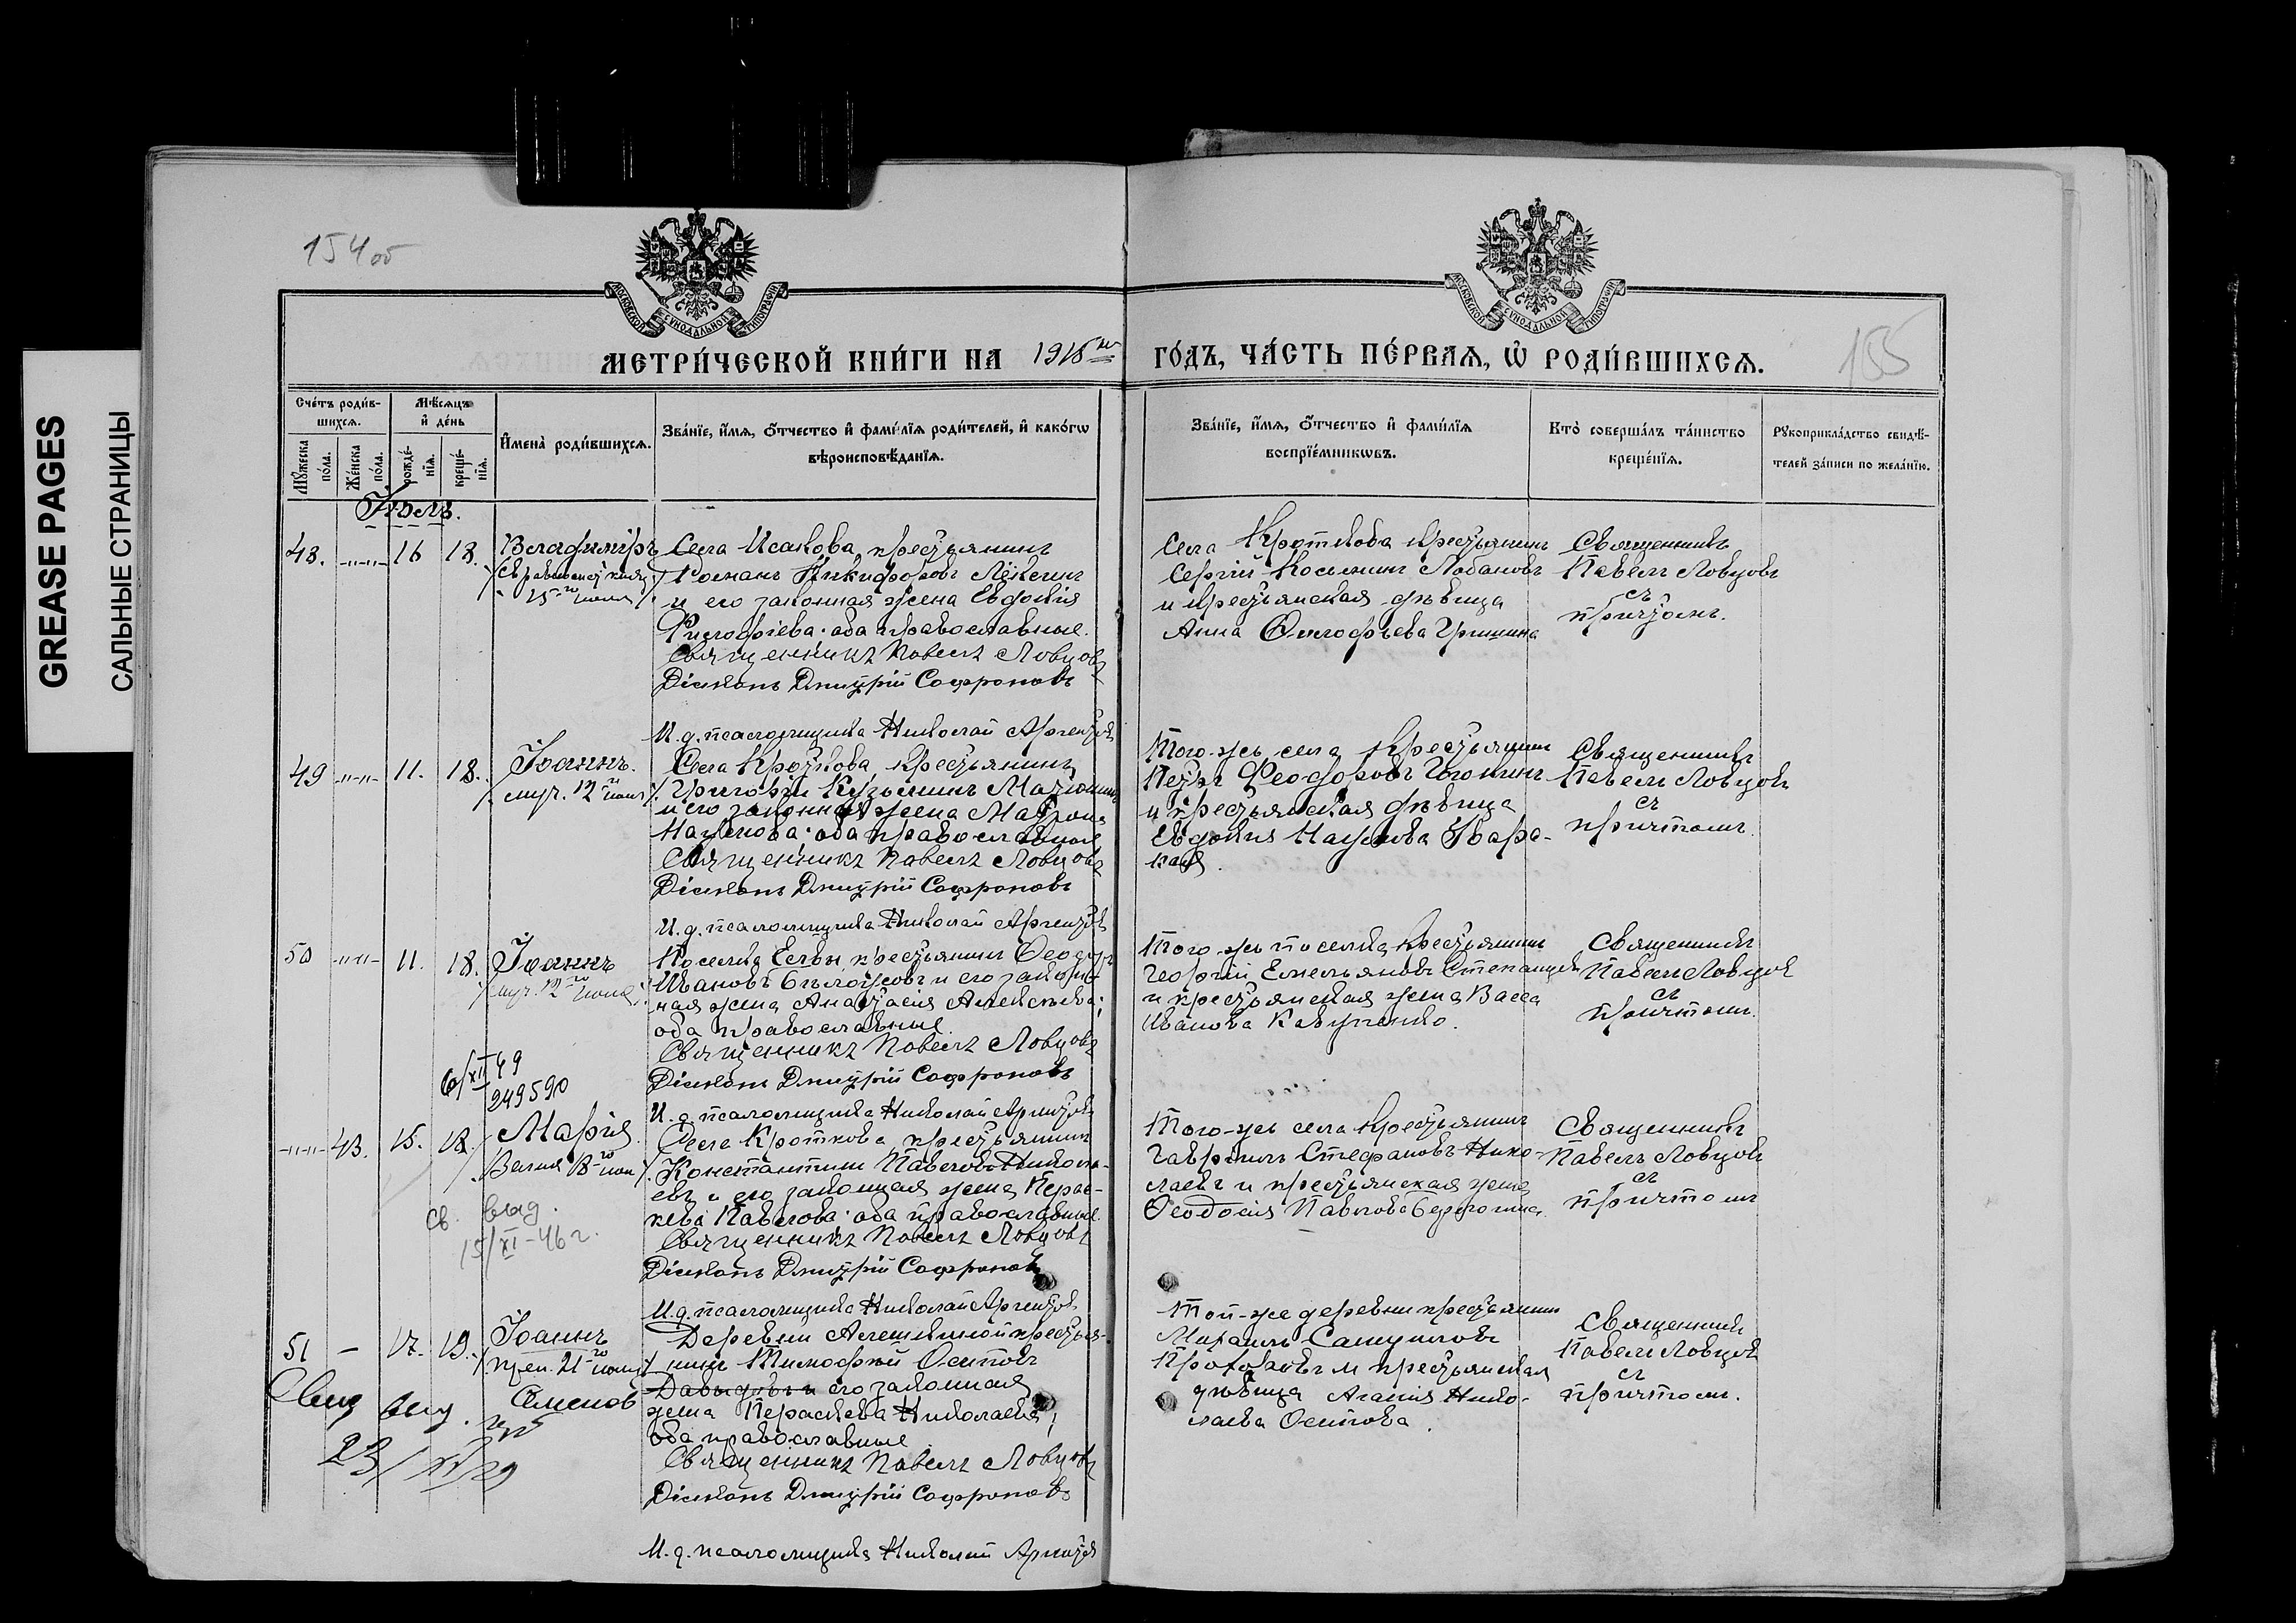 GREASE PAGES
САЛЬНЫЕ СТРАНИЦЫ
154 об
155
МОСКОВСКОЙ СѴНОДАЛЬНОЙ ТИПОГРАФІИ
МОСКОВСКОЙ СѴНОДАЛЬНОЙ ТИПОГРАФІИ
МЕТРИ́ЧЕСКОЙ КНИ́ГИ НА 1915 ГО́ДЪ, ЧА́СТЬ ПЕ́РВАЯ, Ѡ҆ РОДИ́ВШИХСЯ.
Сче́тъ роди́в-
шихся.
Мѣ́сяцъ
и҆ де́нь
Мꙋ́жеска
по́ла.
Же́нска
по́ла.
рожде́-
нїя.
креще́-
нїя.
И҆мена̀ роди́вшихся.
Зва́нїе, и҆́мя, ѻ҆́тчество и҆ фами́лїя роди́телей, и҆ како́гѡ
вѣроисповѣ́данїя.
Зва́нїе, и҆́мя, ѻ҆́тчество и҆ фами́лїя
воспрїе́мникѡвъ.
Кто̀ соверша́лъ та́инство
креще́нїя.
Рꙋкоприкла́дство свидѣ́-
телей за́писи по жела́нїю.
Іюль.
48. -"-"- 16 18.
Владиміръ
15го іюля
Села Исакова, крестьянинъ
Романъ Никифоровъ
и его законная жена Евдокія
оба православные.
Священникъ Павелъ Ловцовъ
Діаконъ Дмитрій Софроновъ
И.д. псаломщика Николай
Села Кроткова крестьянинъ
Сергій Косьминъ Лобановъ
и крестьянская дѣвица
Анна Гришина
Священникъ
Павелъ Ловцовъ
съ
причтомъ.
49 -"-"- 11. 18.
Іоаннъ.
муч. 12го іюля
Села Кроткова крестьянинъ
Григорій Кузьминъ
и его законная жена
Наумова; оба православные
Священникъ Павелъ Ловцовъ
Діаконъ Дмитрій Софроновъ
И.д. псаломщика Николай
Того-жъ села крестьянинъ
Петръ Феодоровъ
и крестьянская дѣвица
Евдокія Наумова
Священникъ
Павелъ Ловцовъ
съ
причтомъ.
50 -"-"- 11. 18.
Іоаннъ
муч. 12го іюля
Поселка крестьянинъ Ѳеодоръ
Ивановъ Бѣлоусовъ и его закон-
ная жена Анастасія Алексѣева;
оба православные.
Священникъ Павелъ Ловцовъ
Діаконъ Дмитрій Софроновъ
И.д. псаломщика Николай
Того-жъ поселка крестьянинъ
Георгій Емельяновъ
и крестьянская жена Васса
Иванова
Священникъ
Павелъ Ловцовъ
съ
причтомъ.
6/XII 49
249590
-"-"- 43. 15. 18.
Марія
Села Кроткова крестьянинъ
Константинъ Павловъ Никола-
евъ и его законная жена Перас-
кева Павлова; оба православные.
Священникъ Павелъ Ловцовъ
Діаконъ Дмитрій Софроновъ
И.д. псаломщика Николай
Того-жъ села крестьянинъ
Гавріилъ Стефановъ Нико-
лаевъ и крестьянская жена
Ѳеодосія Павлова
Священникъ
Павелъ Ловцовъ
съ
причтомъ
св. выд.
15/XI-46 г.
51 - 17. 19.
Іоаннъ
преп. 21го іюля
Деревни крестья-
нинъ Тимофей Осиповъ
Давыдовъ и его законная
жена Пераскева Николаева;
оба православные
Священникъ Павелъ Ловцовъ
Діаконъ Дмитрій Софроновъ
И.д. псаломщика Николай
Той-же деревни крестьянинъ
Михаилъ
и крестьянская
дѣвица Нико-
лаева Осипова.
Священникъ
Павелъ Ловцовъ
съ
причтомъ.
Свид выд.
23/XI 29